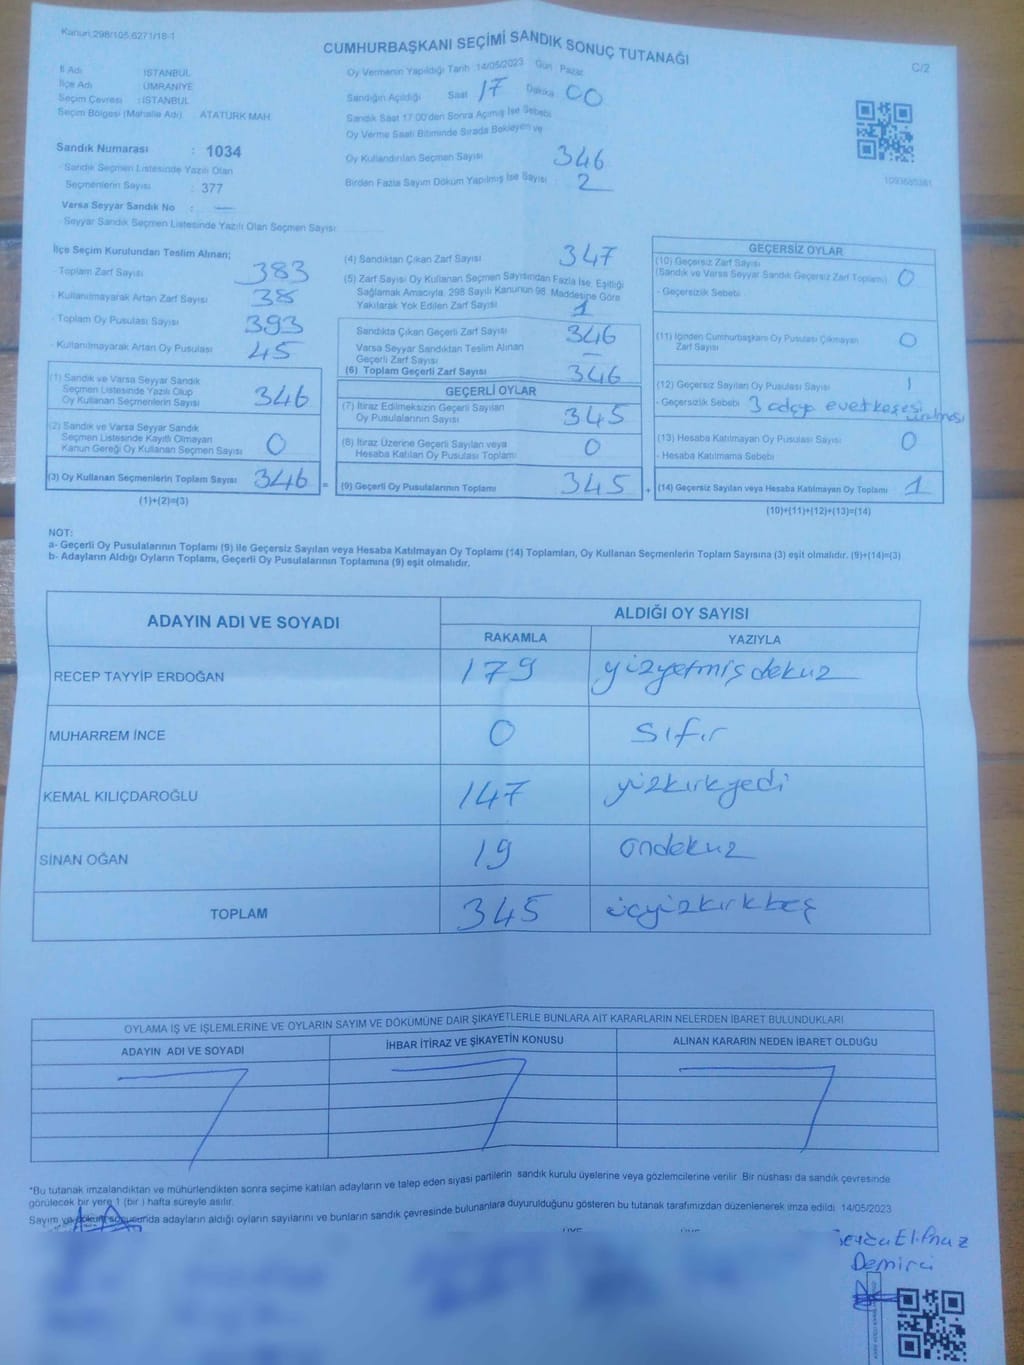 Kanun:298/105,6271/18-1
CUMHURBAŞKANI SEÇİMİ SANDIK SONUÇ TUTANAĞI
C/2
İl Adı : İSTANBUL
İlçe Adı : ÜMRANİYE
Seçim Çevresi : İSTANBUL
Seçim Bölgesi (Mahalle Adı) ATATÜRK MAH.
Sandık Numarası : 1034
Sandık Seçmen Listesinde Yazılı Olan
Seçmenlerin Sayısı : 377
Varsa Seyyar Sandık No : —
Seyyar Sandık Seçmen Listesinde Yazılı Olan Seçmen Sayısı
Oy Vermenin Yapıldığı Tarih 14/05/2023 Gün Pazar
Sandığın Açıldığı Saat 17 Dakika 00
Sandık Saat 17.00'den Sonra Açılmış İse Sebebi
Oy Verme Saati Bitiminde Sırada Bekleyen ve
Oy Kullandırılan Seçmen Sayısı 346
Birden Fazla Sayım Döküm Yapılmış İse Sayısı 2
1093685381
İlçe Seçim Kurulundan Teslim Alınan;
Toplam Zarf Sayısı 383
- Kullanılmayarak Artan Zarf Sayısı 38
- Toplam Oy Pusulası Sayısı 393
- Kullanılmayarak Artan Oy Pusulası 45
(1) Sandık ve Varsa Seyyar Sandık
Seçmen Listesinde Yazılı Olup
Oy Kullanan Seçmenlerin Sayısı 346
(2) Sandık ve Varsa Seyyar Sandık
Seçmen Listesinde Kayıtlı Olmayan
Kanun Gereği Oy Kullanan Seçmen Sayısı 0
(3) Oy Kullanan Seçmenlerin Toplam Sayısı 346 =
(1)+(2)=(3)
(4) Sandıktan Çıkan Zarf Sayısı 347
(5) Zarf Sayısı Oy Kullanan Seçmen Sayısından Fazla İse, Eşitliği
Sağlamak Amacıyla, 298 Sayılı Kanunun 98. Maddesine Göre
Yakılarak Yok Edilen Zarf Sayısı 1
Sandıkta Çıkan Geçerli Zarf Sayısı 346
Varsa Seyyar Sandıktan Teslim Alınan
Geçerli Zarf Sayısı —
(6) Toplam Geçerli Zarf Sayısı 346
GEÇERLİ OYLAR
(7) İtiraz Edilmeksizin Geçerli Sayılan
Oy Pusulalarının Sayısı 345
(8) İtiraz Üzerine Geçerli Sayılan veya
Hesaba Katılan Oy Pusulası Toplamı 0
(9) Geçerli Oy Pusulalarının Toplamı 345 +
GEÇERSİZ OYLAR
(10) Geçersiz Zarf Sayısı
(Sandık ve Varsa Seyyar Sandık Geçersiz Zarf Toplamı) 0
- Geçersizlik Sebebi
(11) İçinden Cumhurbaşkanı Oy Pusulası Çıkmayan
Zarf Sayısı 0
(12) Geçersiz Sayılan Oy Pusulası Sayısı 1
- Geçersizlik Sebebi 3 adaya evet kaşesi
(13) Hesaba Katılmayan Oy Pusulası Sayısı 0
- Hesaba Katılmama Sebebi
(14) Geçersiz Sayılan veya Hesaba Katılmayan Oy Toplamı 1
(10)+(11)+(12)+(13)=(14)
NOT:
a- Geçerli Oy Pusulalarının Toplamı (9) ile Geçersiz Sayılan veya Hesaba Katılmayan Oy Toplamı (14) Toplamları, Oy Kullanan Seçmenlerin Toplam Sayısına (3) eşit olmalıdır. (9)+(14)=(3)
b- Adayların Aldığı Oyların Toplamı, Geçerli Oy Pusulalarının Toplamına (9) eşit olmalıdır.
ADAYIN ADI VE SOYADI
ALDIĞI OY SAYISI
RAKAMLA YAZIYLA
RECEP TAYYİP ERDOĞAN 179 yüzyetmiş dokuz
MUHARREM İNCE 0 sıfır
KEMAL KILIÇDAROĞLU 147 yüzkırkyedi
SİNAN OĞAN 19 ondokuz
TOPLAM 345 üçyüzkırkbeş
OYLAMA İŞ VE İŞLEMLERİNE VE OYLARIN SAYIM VE DÖKÜMÜNE DAİR ŞİKAYETLERLE BUNLARA AİT KARARLARIN NELERDEN İBARET BULUNDUKLARI
ADAYIN ADI VE SOYADI İHBAR İTİRAZ VE ŞİKAYETİN KONUSU ALINAN KARARIN NEDEN İBARET OLDUĞU
*Bu tutanak imzalandıktan ve mühürlendikten sonra seçime katılan adayların ve talep eden siyasi partilerin sandık kurulu üyelerine veya gözlemcilerine verilir. Bir nüshası da sandık çevresinde
görülecek bir yere 1 (bir) hafta süreyle asılır.
Sayım ve döküm sonucunda adayların aldığı oyların sayılarını ve bunların sandık çevresinde bulunanlara duyurulduğunu gösteren bu tutanak tarafımızdan düzenlenerek imza edildi 14/05/2023
Demirci